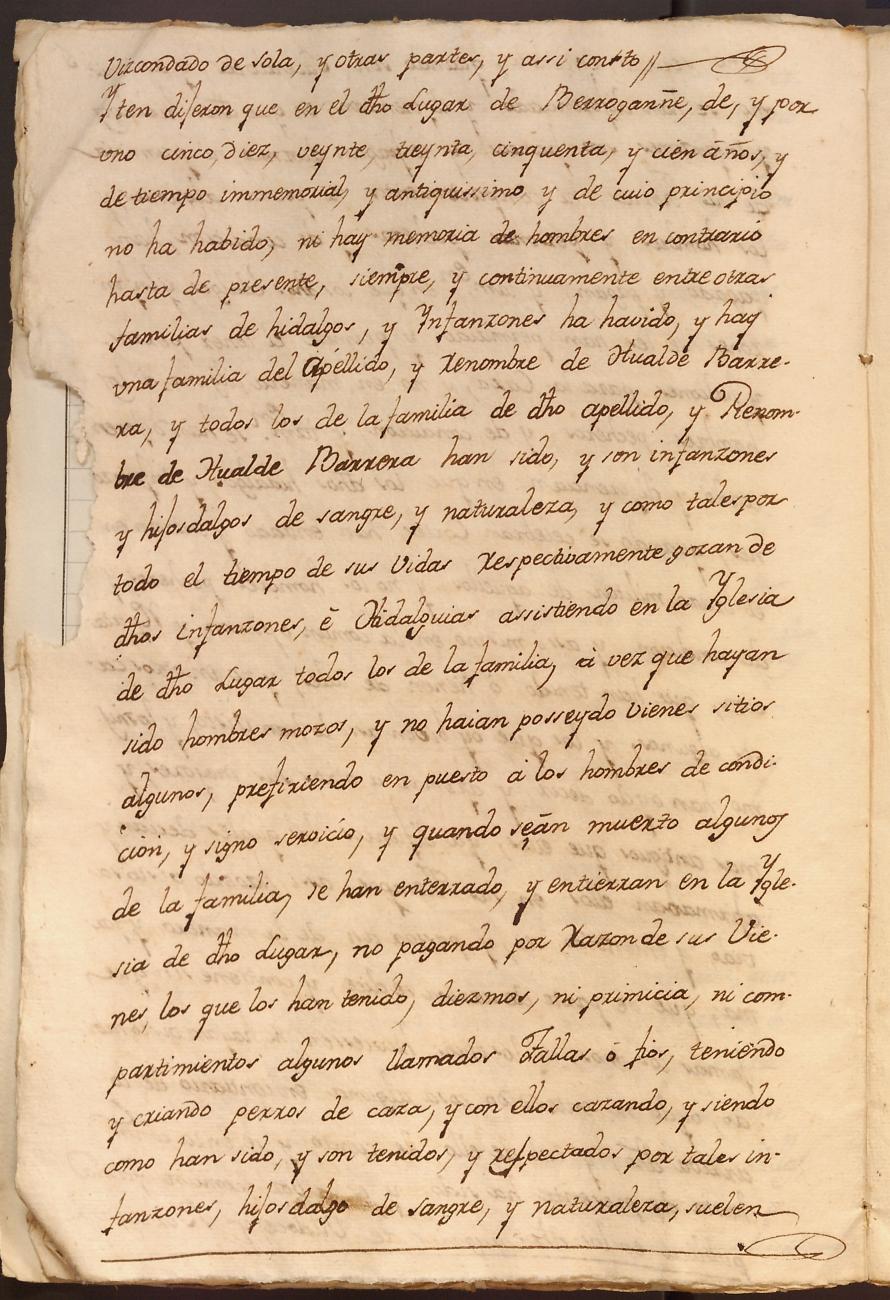 Vizcondado de sola, y otras partes, y assi consto //
Yten dijeron que en el dho Lugar de Berrogañne, de, y por
uno cinco, Diez, veynte, treynta, cinquenta, y cien años, y
de tiempo immemorial, y antiquissimo y de cuio principio
no ha habido, ni hay memoria de hombres en contrario
hasta de presente, siempre, y continuamente entre otras
familias de hidalgos, y Ynfanzones ha havido, y hay
una familia del Apéllido, y Renombre de Hualde Barre-
ra, y todos los de la familia de dho apellido, y Renom-
bre de Hualde Barrera han sido, y son infanzones
y hijosdalgos de sangre, y naturaleza, y como tales por
todo el tiempo de sus Vidas Respectivamente gozan de
dhos infanzones, é Hidalguias assistiendo en la Yglesia
de dho Lugar todos los de la familia, á vez que hayan
sido hombres mozos, y no haian posseydo Vienes sitios
algunos, prefiriendo en puesto á los hombres de condi-
ción, y signo servicio, y quando seãn muerto algunos
de la familia, se han enterrado, y entierran en la Ygle-
sia de dho Lugar, no pagando por Razon de sus Vie-
nes, los que los han tenido, diezmos, ni primicia, ni com-
partimientos algunos llamados Tallas ó fios, teniendo
y criando perros de caza, y con ellos cazando, y siendo
como han sido, y son tenidos, y respectados por tales in-
fanzones, hijosdalgo de sangre, y naturaleza, suelen